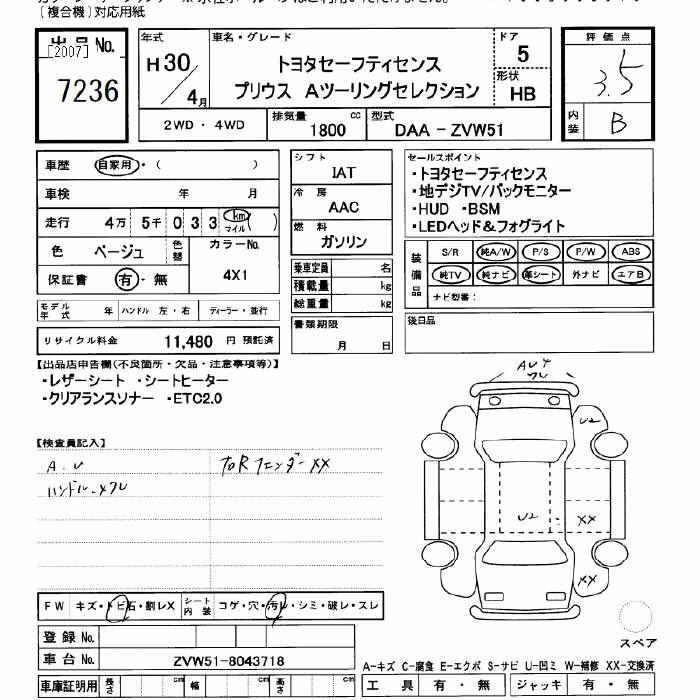 (複合機)対応用紙
出品No.
[2007]
7236
年式
H30
4月
車名・グレード
トヨタセーフティセンス
プリウス Aツーリングセレクション
ドア
5
形状
HB
2WD・4WD
排気量
1800 cc
型式
DAA-ZVW51
評価点
3.5
内装
B
車歴 自家用・( )
車検 年 月
走行 4万 5千 0 3 3 km マイル ( )
色 ベージュ
色替
カラーNo.
4X1
保証書 有・無
モデル年式 年 ハンドル 左・右 ディーラー・並行
リサイクル料金 11,480 円 預託済
シフト
IAT
冷房
AAC
燃料
ガソリン
乗車定員 名
積載量 kg
総重量 kg
書類期限
月 日
セールスポイント
・トヨタセーフティセンス
・地デジTV/バックモニター
・HUD ・BSM
・LEDヘッド&フォグライト
装備品
S/R 純A/W P/S P/W ABS
純TV 純ナビ 革シート 外ナビ エアB
ナビ型番:
後日品
【出品店申告欄(不良箇所・欠品・注意事項等)】
・レザーシート ・シートヒーター
・クリアランスソナー ・ETC2.0
【検査員記入】
A.U
ハンドル
Rフェンダー XX
AU4
U2
U2
XX
XX
FW キズ・トビ石・割レX
シート内装 コゲ・穴・汚レ・シミ・破レ・スレ
登録No.
車台No. ZVW51-8043718
車庫証明用 長さ cm 幅 cm 高さ cm
スペア
A-キズ C-腐食 E-エクボ S-サビ U-凹ミ W-補修 XX-交換済
工具 有・無 ジャッキ 有・無